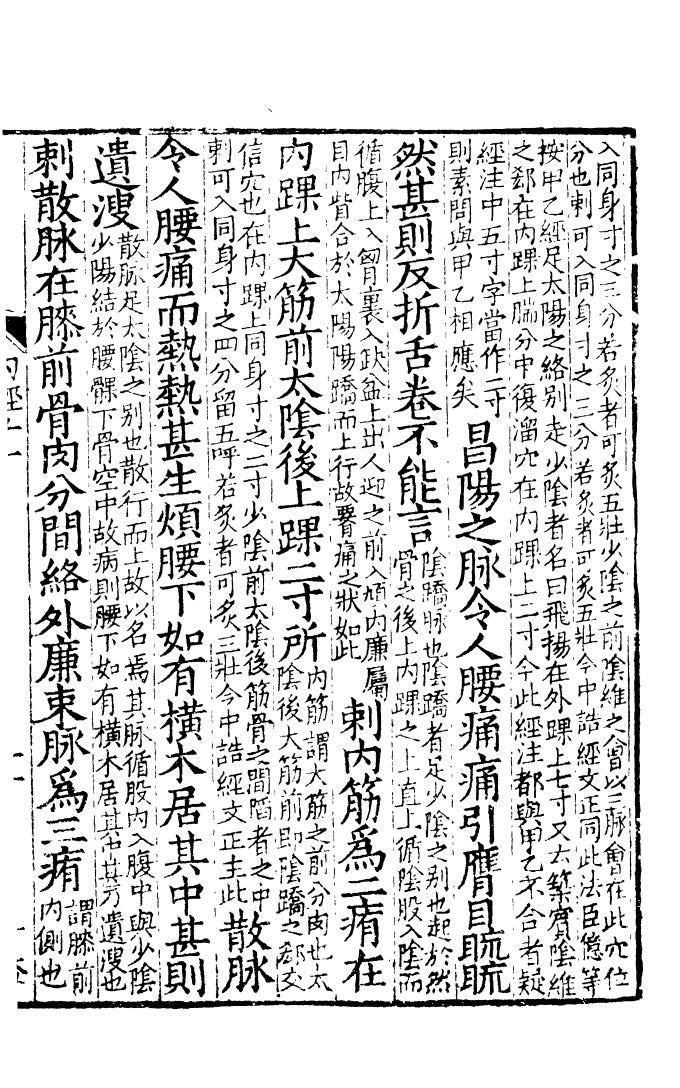 入同身寸之三分若炙者可炙五壯少陰之前陰維之會以三脉會在此穴位
分也刺可入同身寸之三分若炙者可炙五壯今中誥經文正同此法臣億等
按甲乙經足太陽之絡別走少陰者名曰飛揚在外踝上七寸又云築賓陰維
之郄在內踝上腨分中復溜穴在內踝上二寸今此經注都與甲乙不合者疑
經注中五寸字當作二寸
則素問與甲乙相應矣
昌陽之脉令人腰痛痛引膺目䀮䀮
然甚則反折舌卷不能言
陰蹻脉也陰蹻者足少陰之別也起於然
骨之後上內踝之上直上循陰股入陰而
循腹上入胷裏入缺盆上出人迎之前入頄內廉屬
目內眥合於太陽陽蹻而上行故署痛之狀如此
刺內筋爲二痏在
內踝上大筋前太陰後上踝二寸所
內筋謂大筋之前分肉也太
陰後大筋前即陰蹻之郄交
信穴也在內踝上同身寸之二寸少陰前太陰後筋骨之間䧟者之中
刺可入同身寸之四分留五呼若炙者可炙三壯今中誥經文正主此
散脉
令人腰痛而熱熱甚生煩腰下如有橫木居其中甚則
遺溲
散脉足太陰之別也散行而上故以名焉其脉循股內入腹中與少陰
少陽結於腰髁下骨空中故病則腰下如有橫木居其中甚乃遺溲也
刺散脉在膝前骨肉分間絡外廉束脉爲三痏
謂膝前
內側也
內經十一